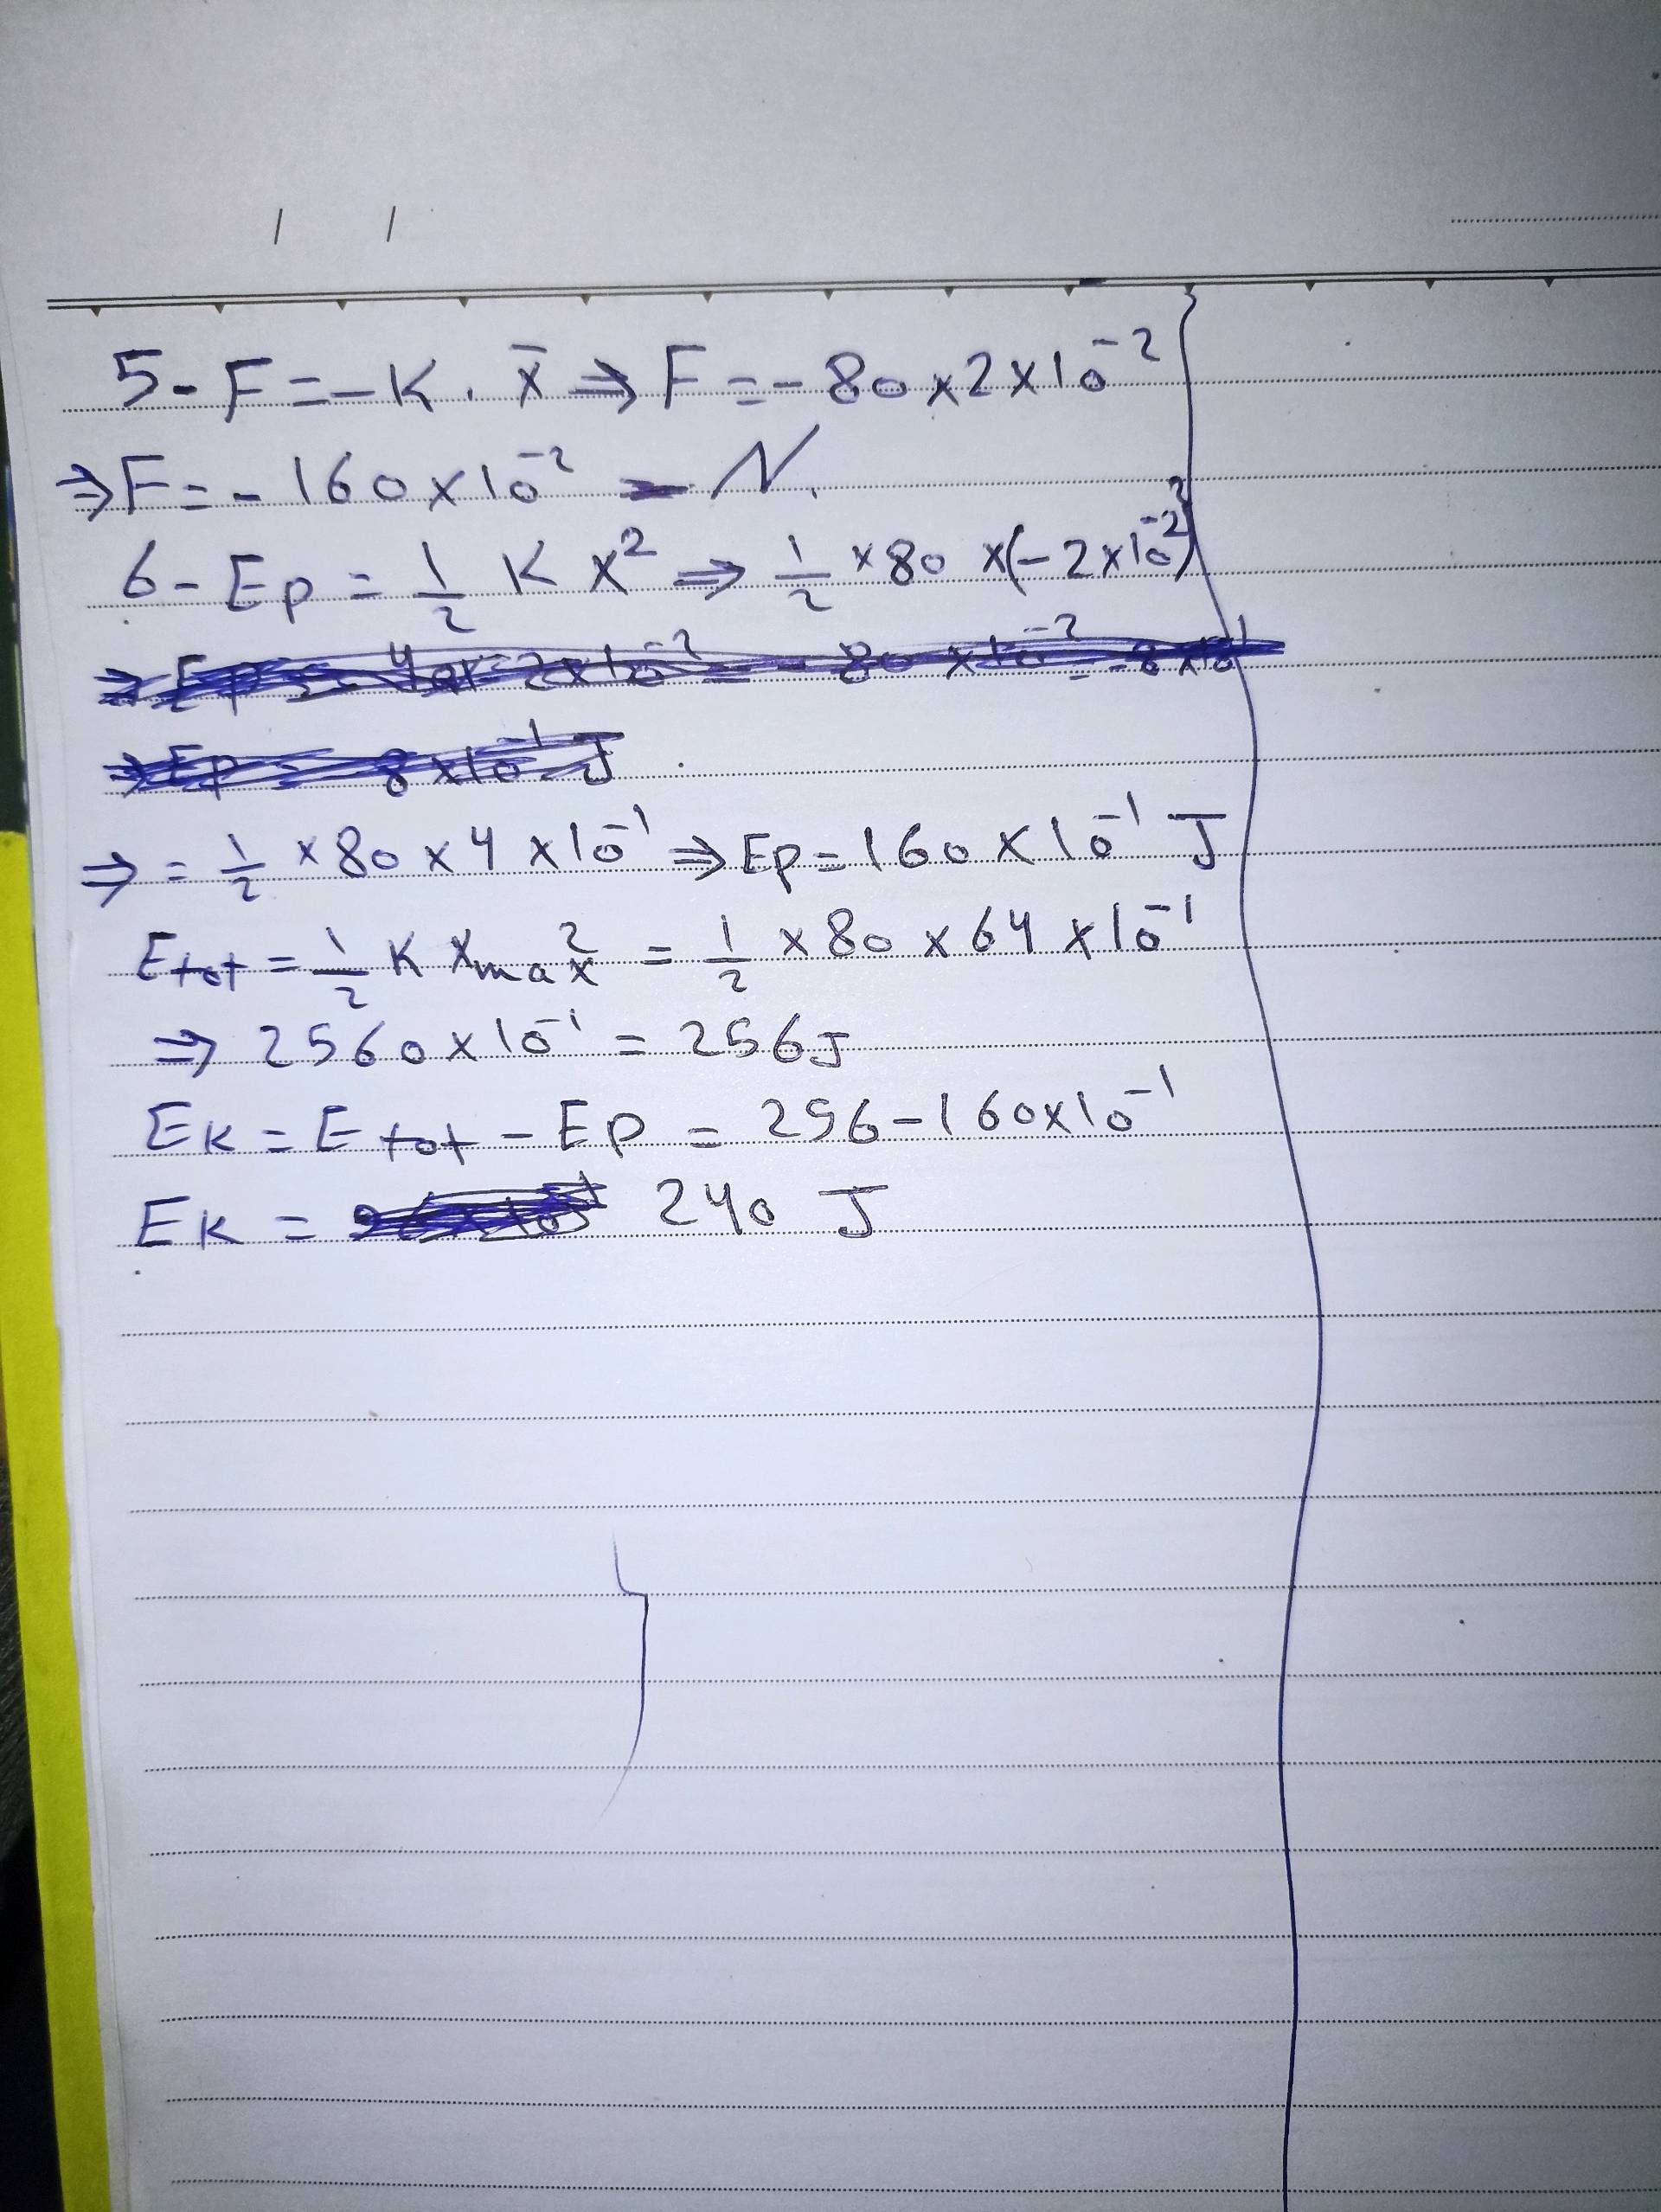 / /
5- F = -K . x̄ ⇒ F = - 80 x 2 x 10⁻²
⇒ F = - 160 x 10⁻² N.
6- Ep = 1/2 K x² ⇒ 1/2 x 80 x (-2 x 10⁻²)²
⇒ = 1/2 x 80 x 4 x 10⁻¹ ⇒ Ep = 160 x 10⁻¹ J
Etot = 1/2 K Xmax² = 1/2 x 80 x 64 x 10⁻¹
⇒ 2560 x 10⁻¹ = 256 J
EK = Etot - Ep = 256 - 160 x 10⁻¹
EK = 240 J